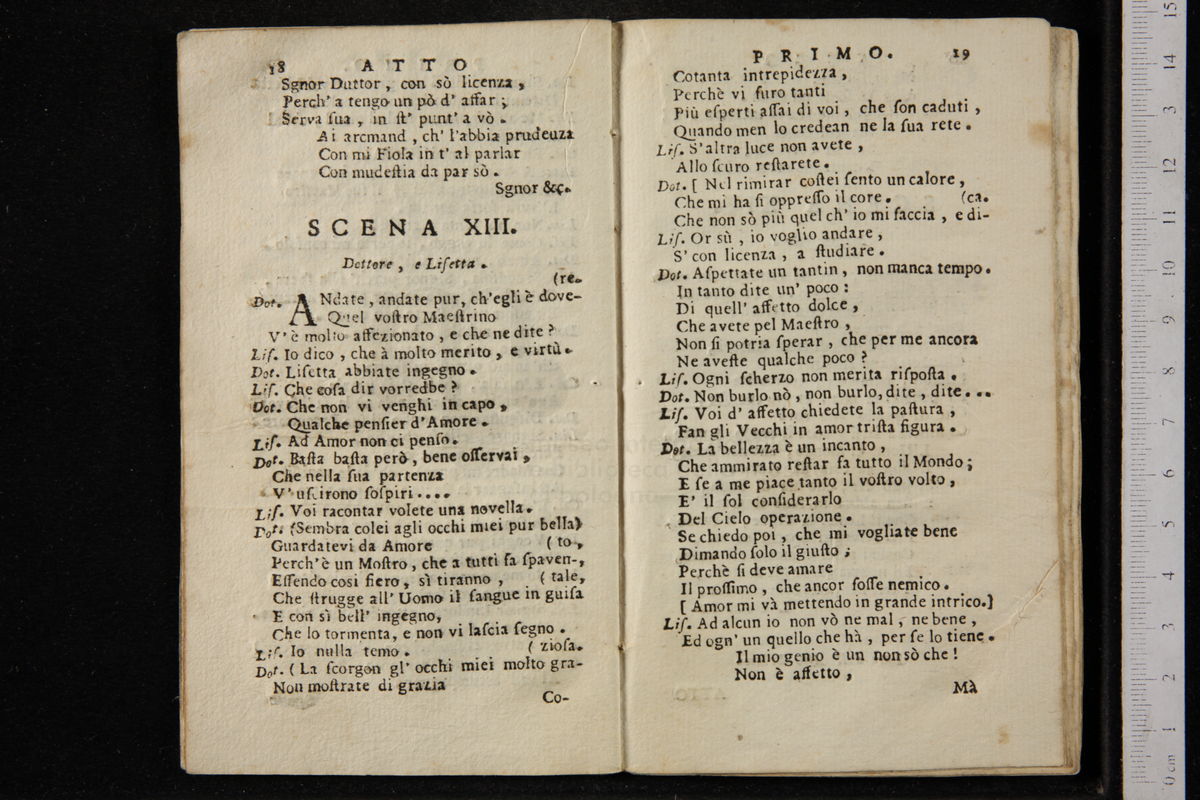 18 ATTO
Sgnor Duttor, con sò licenza,
Perch' a tengo un pò d' affar;
Serva sua, in st' punt' a vò.
Ai arcmand, ch' l'abbia prudeuza
Con mi Fiola in t' al parlar
Con mudestia da par sò.
Sgnor &ç.
SCENA XIII.
Dottore, e Lisetta.
(re.
Dot. ANdate, andate pur, ch'egli è dove-
Quel vostro Maestrino
V' è molto affezionato, e che ne dite?
Lis. Io dico, che à molto merito, e virtù.
Dot. Lisetta abbiate ingegno.
Lis. Che cosa dir vorredbe?
Dot. Che non vi venghi in capo,
Qualche pensier d'Amore.
Lis. Ad Amor non ci penso.
Dot. Basta basta però, bene osservai,
Che nella sua partenza
V' uscirono sospiri....
Lis. Voi racontar volete una novella.
Dot: (Sembra colei agli occhi miei pur bella)
Guardatevi da Amore (to,
Perch'è un Mostro, che a tutti fa spaven-,
Essendo cosi fiero, sì tiranno, (tale,
Che strugge all' Uomo il sangue in guisa
E con sì bell' ingegno,
Che lo tormenta, e non vi lascia segno.
Lis. Io nulla temo. (ziosa.
Dot. (La scorgon gl' occhi miei molto gra-
Non mostrate di grazia
Co-
PRIMO. 19
Cotanta intrepidezza,
Perchè vi furo tanti
Più esperti assai di voi, che son caduti,
Quando men lo credean ne la sua rete.
Lis. S'altra luce non avete,
Allo scuro restarete.
Dot. [Nel rimirar costei sento un calore,
Che mi ha si oppresso il core. (ca.
Che non sò più quel ch' io mi faccia, e di-
Lis. Or sù, io voglio andare,
S' con licenza, a studiare.
Dot. Aspettate un tantin, non manca tempo.
In tanto dite un' poco:
Di quell' affetto dolce,
Che avete pel Maestro,
Non si potria sperar, che per me ancora
Ne aveste qualche poco?
Lis. Ogni scherzo non merita risposta.
Dot. Non burlo nò, non burlo, dite, dite...
Lis. Voi d' affetto chiedete la pastura,
Fan gli Vecchi in amor trista figura.
Dot. La bellezza è un incanto,
Che ammirato restar fa tutto il Mondo;
E se a me piace tanto il vostro volto,
E' il sol considerarlo
Del Cielo operazione.
Se chiedo poi, che mi vogliate bene
Dimando solo il giusto;
Perchè si deve amare
Il prossimo, che ancor fosse nemico.
[Amor mi và mettendo in grande intrico.]
Lis. Ad alcun io non vò ne mal, ne bene,
Ed ogn' un quello che hà, per se lo tiene.
Il mio genio è un non sò che!
Non è affetto,
Mà